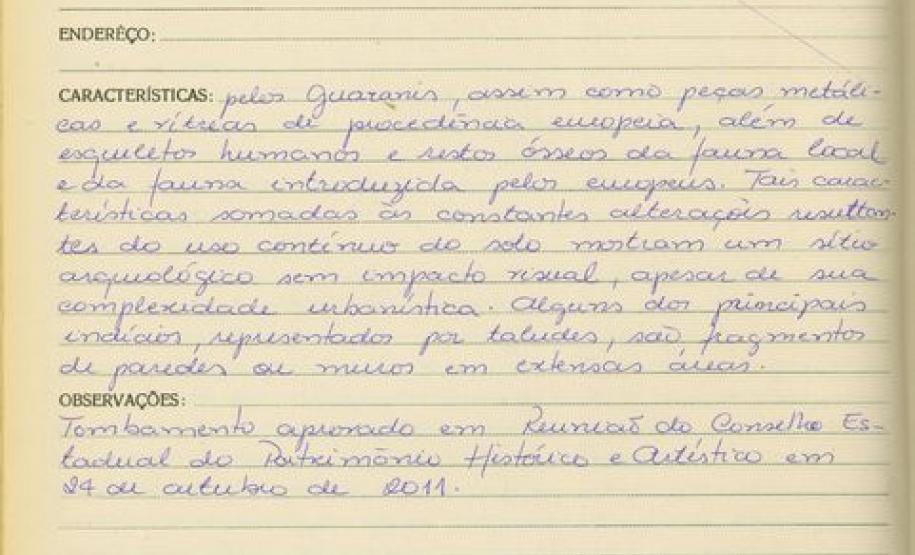 ENDERÊÇO:
CARACTERÍSTICAS: pelos Guaranis, assim como peças metáli-
cas e vítreas de procedência europeia, além de
esqueletos humanos e restos ósseos da fauna local
e da fauna introduzida pelos europeus. Tais carac-
terísticas somadas às constantes alterações resultan-
tes do uso contínuo do solo mostram um sítio
arqueológico sem impacto visual, apesar de sua
complexidade urbanística. Alguns dos principais
indícios, representados por taludes, são fragmentos
de paredes ou muros em extensas áreas.
OBSERVAÇÕES:
Tombamento aprovado em Reunião do Conselho Es-
tadual do Patrimônio Histórico e Artístico em
24 de outubro de 2011.